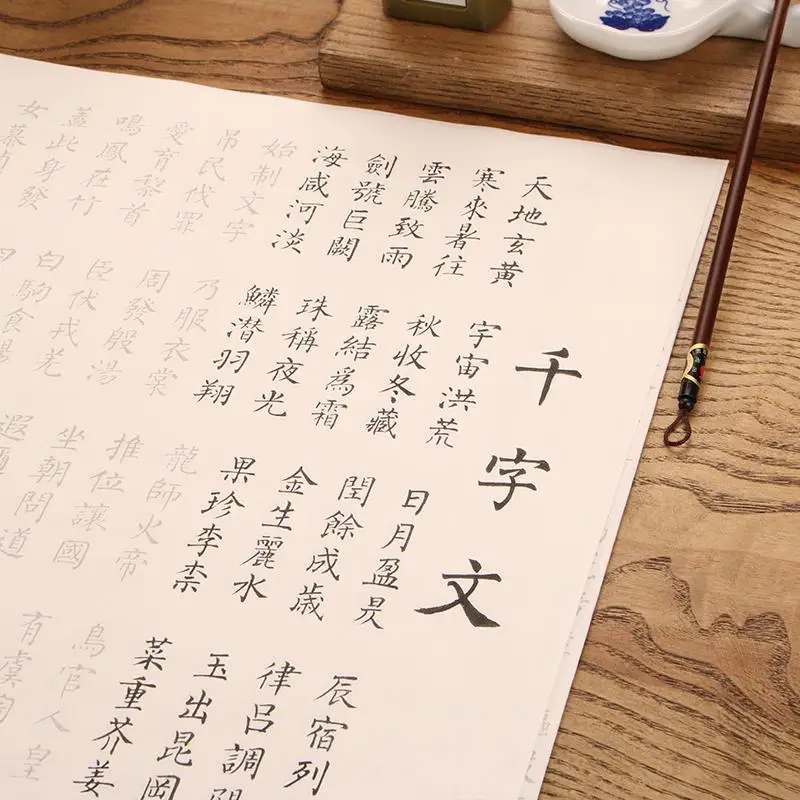 千字文
天地玄黄 宇宙洪荒 日月盈昃 辰宿列
寒來暑往 秋收冬藏 閏餘成歳 律呂調
雲騰致雨 露結爲霜 金生麗水 玉出昆岡
劍號巨闕 珠稱夜光 果珍李柰 菜重芥姜
海咸河淡 鱗潜羽翔 龍師火帝 鳥官人皇
始制文字 乃服衣裳 推位讓國 有虞陶
吊民伐罪 周發殷湯 坐朝問道
愛育黎首 臣伏戎羌 遐邇
鳴鳳在竹 白駒食場
蓋此身發
女慕